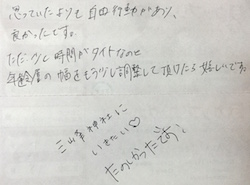 思っていたよりも自由行動があり、
良かったです。
ただ少し時間がタイトなのと
年齢層の幅をもう少し調整して頂けたら嬉しいです。
三峯神社に
いきたい♡
たのしかったです。